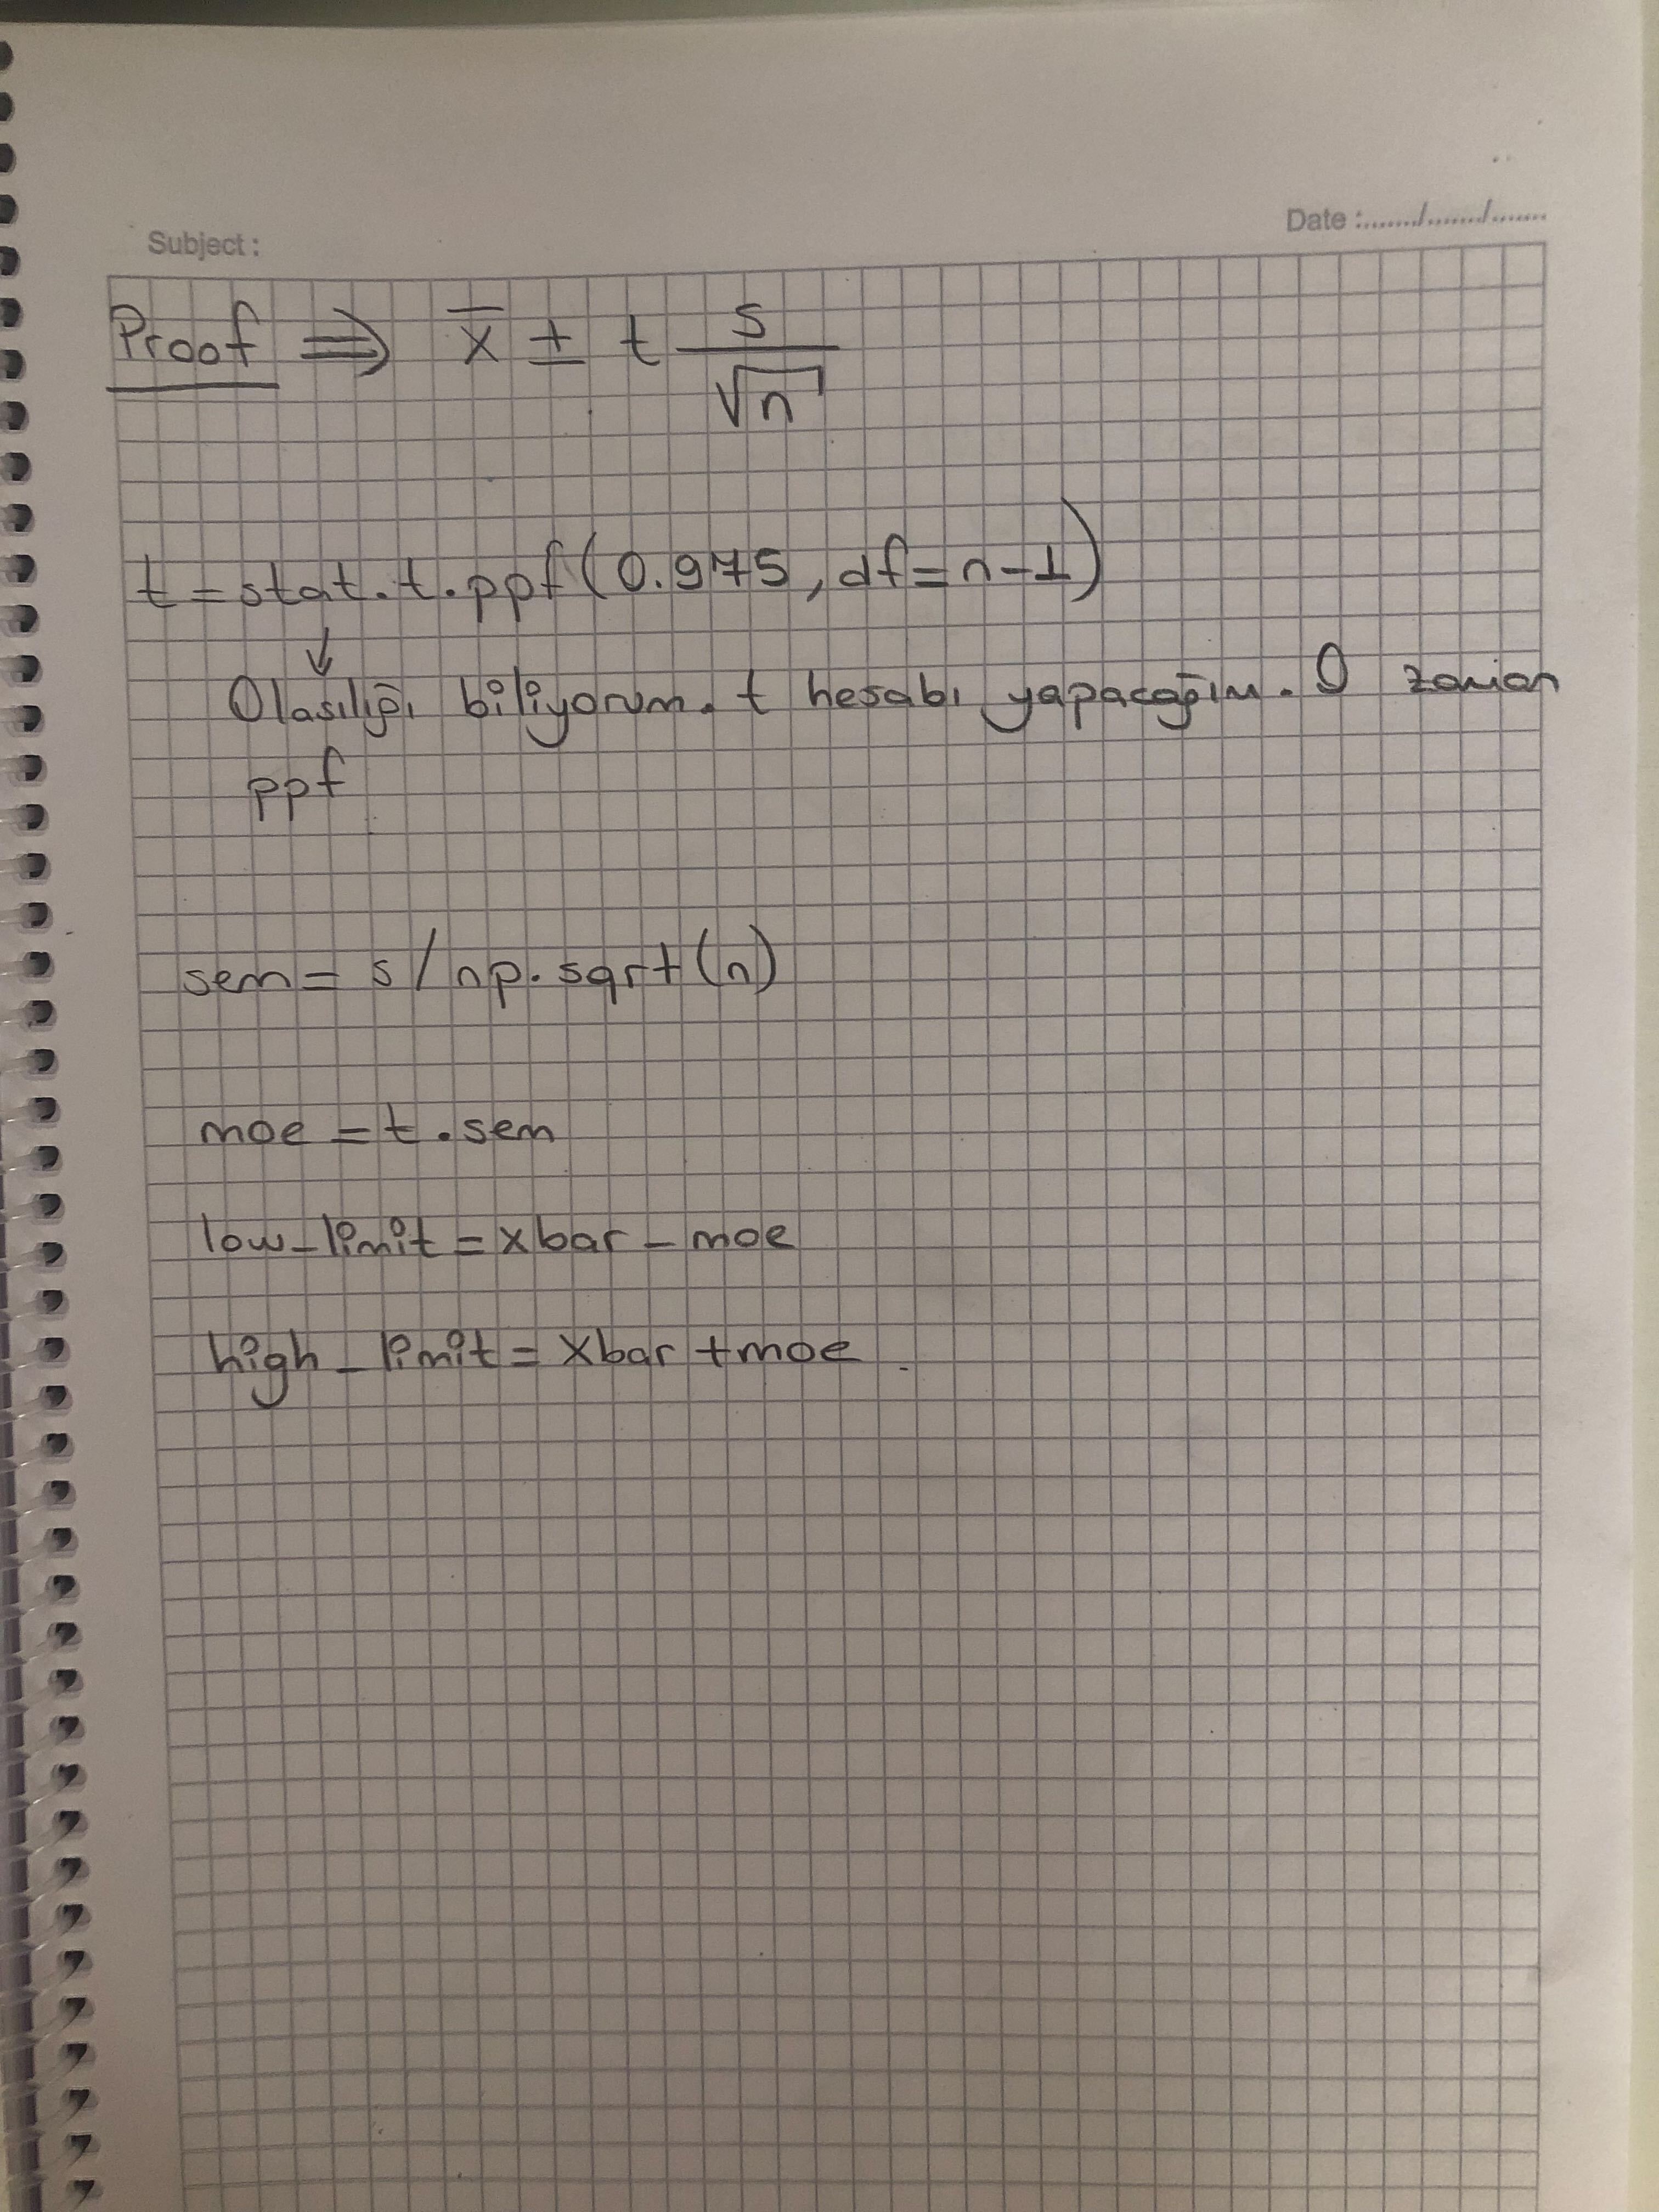 Subject :
Date :......./......./.......
Proof ⇒ x̄ ± t s/√n
t = stat.t.ppf(0.975, df=n-1)
↓
Olasılığı biliyorum. t hesabı yapacağım. O zaman
ppf
sem = s / np.sqrt(n)
moe = t . sem
low_limit = xbar - moe
high_limit = xbar + moe .